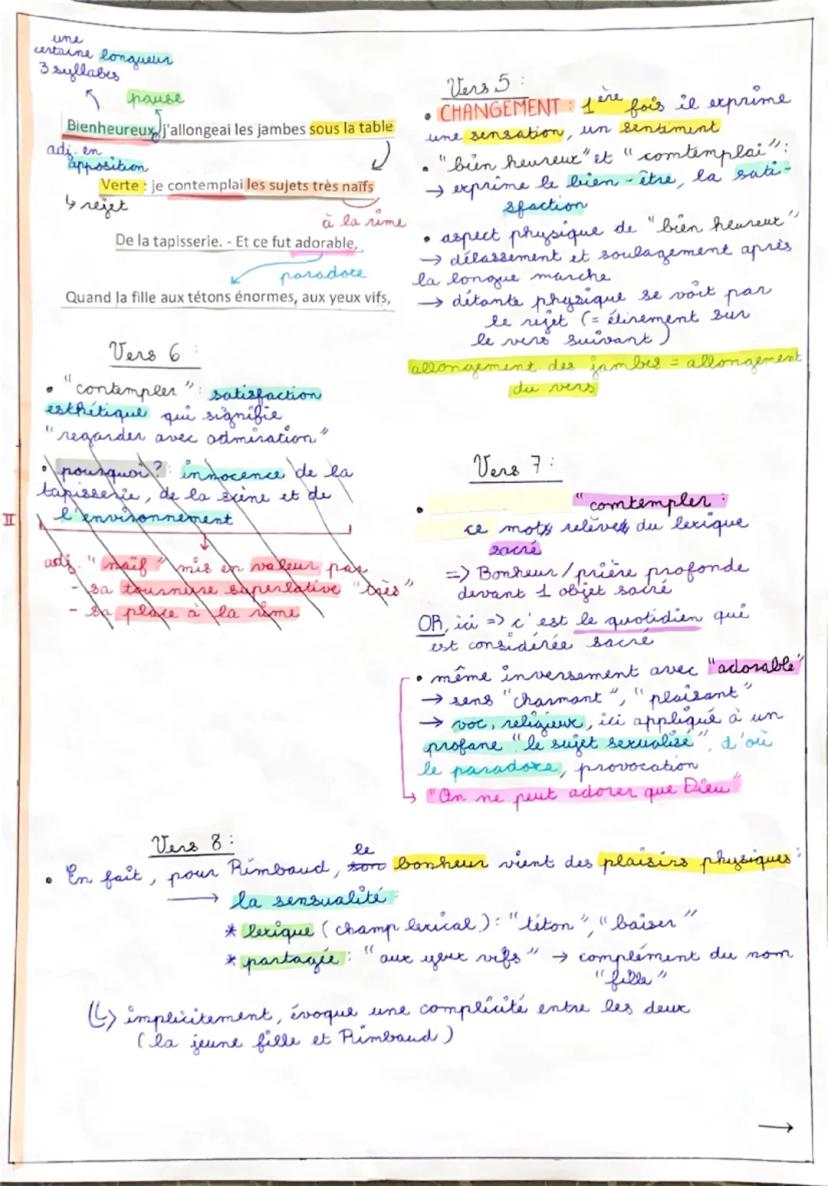 une
certaine longueur
3 syllabes
pause
Bienheureux, j'allongeai les jambes sous la table
adj. en
apposition
Verte : je contemplai les sujets très naïfs
↳ rejet
à la rime
De la tapisserie. - Et ce fut adorable,
paradoxe
Quand la fille aux tétons énormes, aux yeux vifs,
Vers 6 :
• "contempler" : satisfaction
esthétique qui signifie
"regarder avec admiration"
• pourquoi ? : innocence de la
tapisserie, de la scène et de
l'environnement
II
adj. "naïf" mis en valeur par
- sa tournure superlative "très"
- sa place à la rime
Vers 5 :
• CHANGEMENT : 1ère fois il exprime
une sensation, un sentiment
• "bien heureux" et "comtemplai" :
→ exprime le bien-être, la sati-
sfaction
• aspect physique de "bien heureux"
→ délassement et soulagement après
la longue marche
→ détante physique se voit par
le rejet (= étirement sur
le vers suivant)
allongement des jambes = allongement
du vers
Vers 7 :
• "comtempler :
ce mots relèves du lexique
sacré
=> Bonheur/prière profonde
devant 1 objet sacré
OR, ici => c'est le quotidien qui
est considérée sacré
• même inversement avec "adorable"
→ sens "charmant", "plaisant"
→ voc. religieux, ici appliqué à un
profane "le sujet sexualisé", d'où
le paradoxe, provocation
↳ "On ne peut adorer que Dieu"
Vers 8 :
• En fait, pour Rimbaud, son le bonheur vient des plaisirs physiques :
→ la sensualité :
* lexique (champ lexical) : "téton", "baiser"
* partagée : "aux yeux vifs" → complément du nom
"fille"
(↳) implicitement, évoque une complicité entre les deux
(la jeune fille et Rimbaud)
→